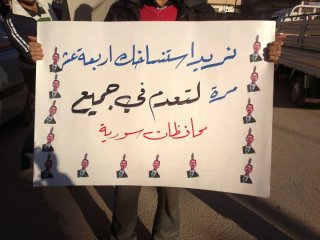 نريد استنساخك اربعة عشر
مرة لتعدم في جميع
محافظات سورية